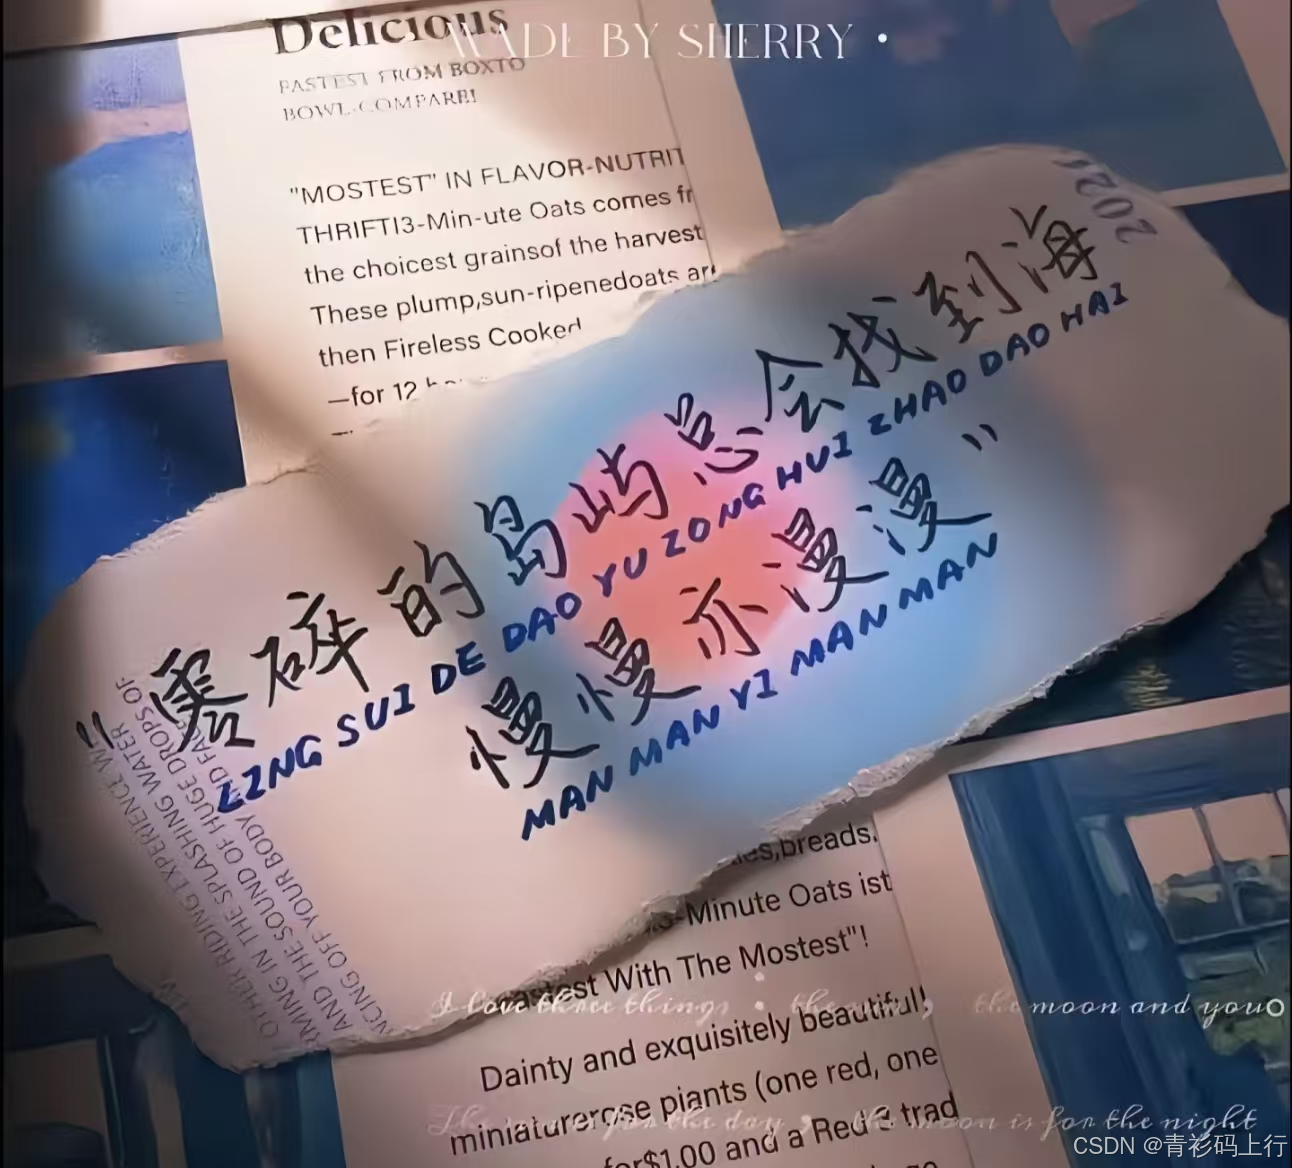 Delicious
MADE BY SHERRY •
FASTEST FROM BOXTO
BOWL-COMPARE!
"MOSTEST" IN FLAVOR-NUTRIT
THRIFTI3-Min-ute Oats comes fr
the choicest grainsof the harvest
These plump,sun-ripenedoats are
then Fireless Cooked
—for 12
2021
"零碎的岛屿总会找到海
LING SUI DE DAO YU ZONG HUI ZHAO DAO HAI
慢慢亦漫漫"
MAN MAN YI MAN MAN
OTHER RIDING EXPERIENCE W
MING IN THE SPLASHING WATER
AND THE SOUND OF HUGE DROPS OF
NCING OFF YOUR BODY ND FAC
es,breads.
3-Minute Oats ist
Fastest With The Mostest"!
I love three things • the sun, the moon and you
Dainty and exquisitely beautiful!
miniaturerose piants (one red, one
The sun is for the day, the moon is for the night
for$1.00 and a Red 3 trad
CSDN @青衫码上行